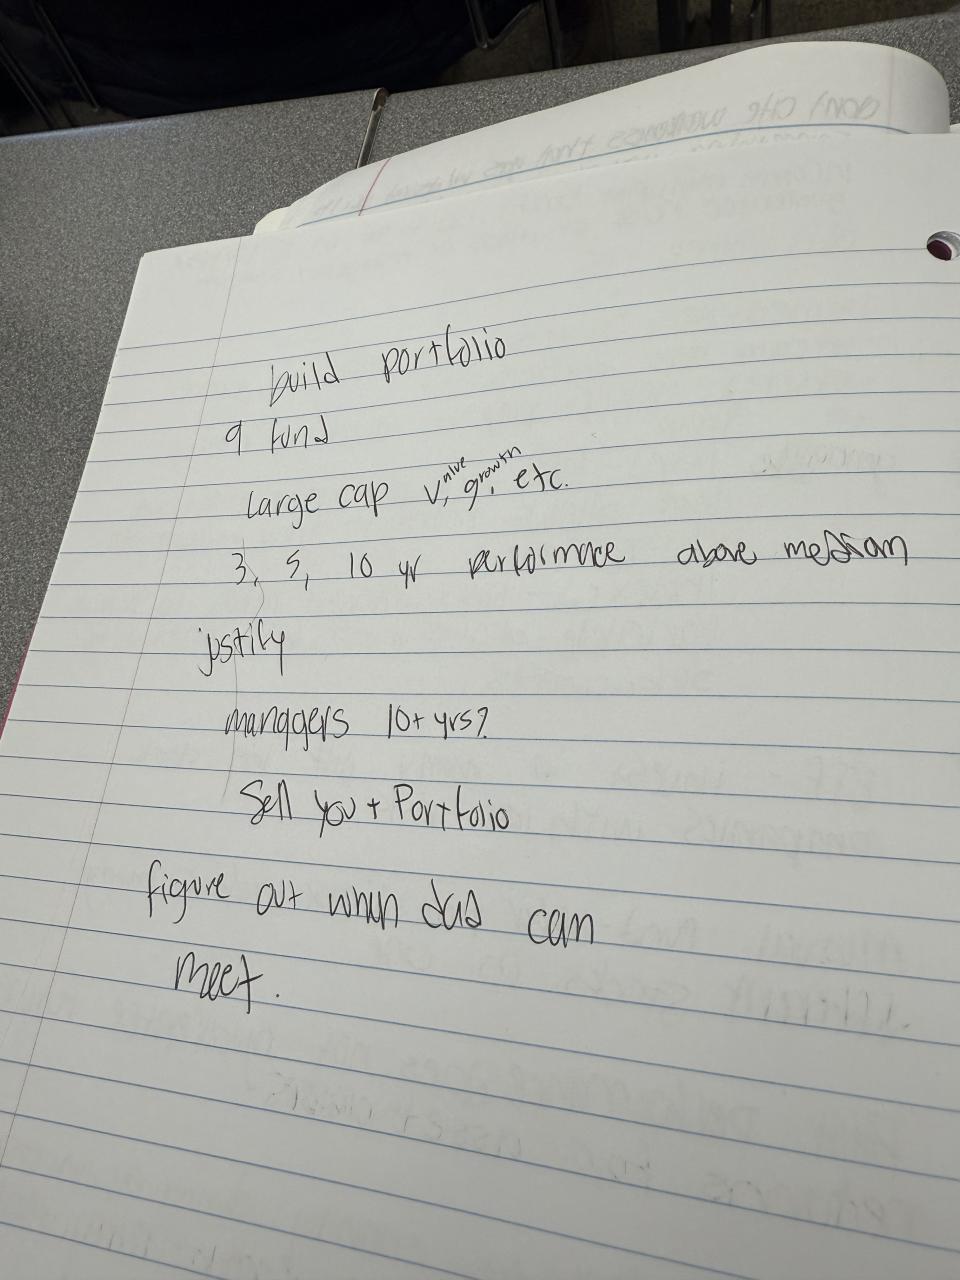 build portfolio
9 fund
large cap value, growth, etc.
3, 5, 10 yr performace above median
justify
managers 10+ yrs?
Sell you + Portfolio
figure out when dad can
meet.